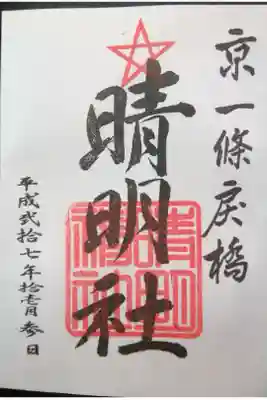 京一條戻橋
晴明社
平成弐拾七年拾壱月参日